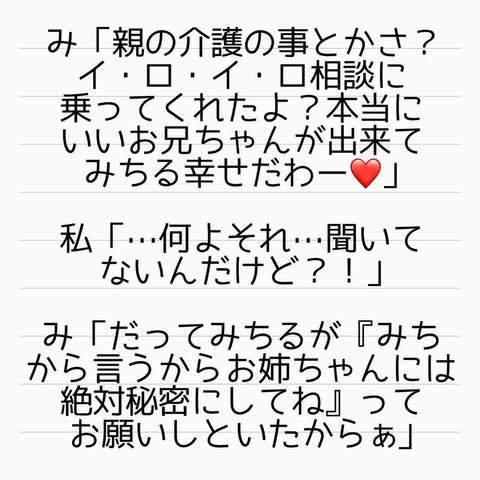 み「親の介護の事とかさ？
イ・ロ・イ・ロ相談に
乗ってくれたよ？本当に
いいお兄ちゃんが出来て
みちる幸せだわー❤️」
私「…何よそれ…聞いて
ないんだけど？！」
み「だってみちるが『みち
から言うからお姉ちゃんには
絶対秘密にしてね』って
お願いしといたからぁ」